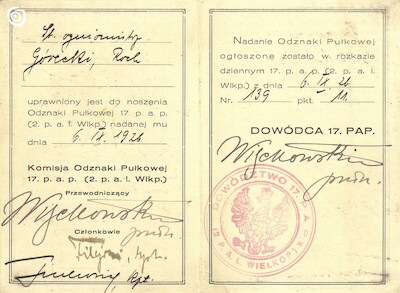 St. ogniomistrz
Górecki, Roch
uprawniony jest do noszenia
Odznaki Pułkowej 17 p. a. p.
(2 p. a. l. Wlkp.) nadanej mu
dnia 6. IX. 1926
Komisja Odznaki Pułkowej
17. p. a. p. (2 p. a. l. Wlkp.)
Przewodniczący
Członkowie
kpt.
Nadanie Odznaki Pułkowej
ogłoszone zostało w rozkazie
dziennym 17. p. a. p. (2 p. a. l.
Wlkp.) z dnia 6. IX. 26
Nr. 139 pkt. 11.
DOWÓDCA 17. PAP.
DOWÓDZTWO 17. P. A. P.
(2 P. A. L. WIELKOP.)